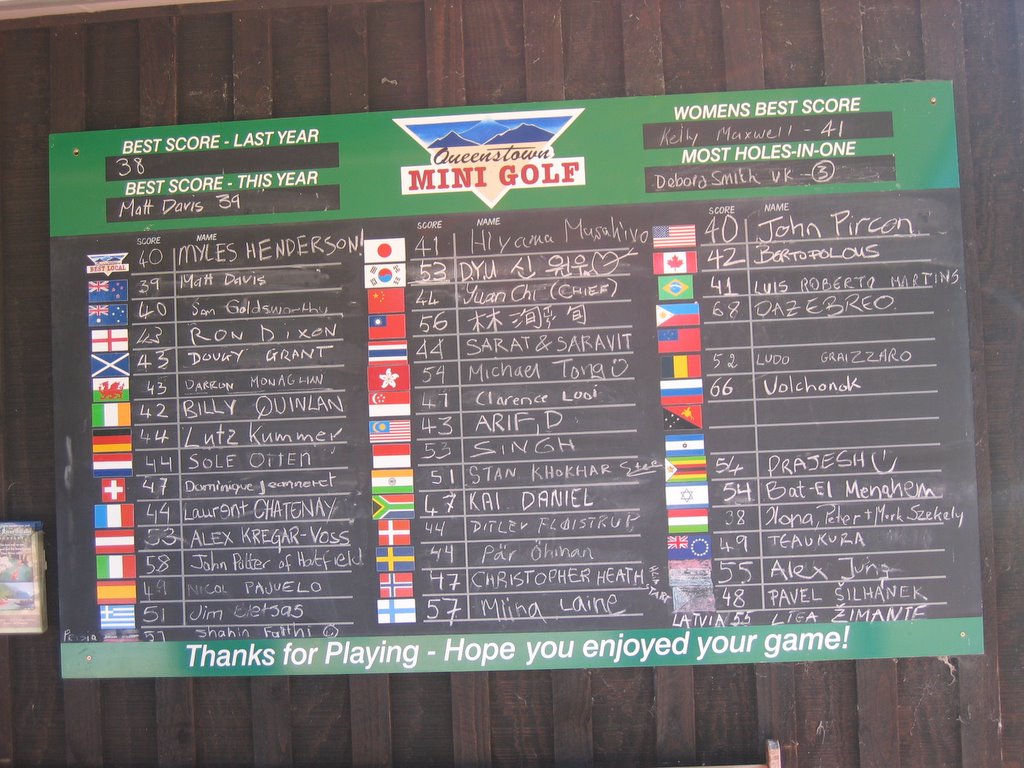 BEST SCORE - LAST YEAR
38
BEST SCORE - THIS YEAR
Matt Davis 39
Queenstown
MINI GOLF
WOMENS BEST SCORE
Kelly Maxwell - 41
MOST HOLES-IN-ONE
Debora Smith UK - 3
SCORE NAME
BEST LOCAL 40 MYLES HENDERSON!
39 Matt Davis
40 Sam Goldsworthy
43 RON DIXON
43 DOUGY GRANT
43 DARRON MONAGHAN
42 BILLY QUINLAN
44 Lutz Kummer
44 SOLE OTTEN
47 Dominique Jeanneret
44 Laurent CHATENAY
53 ALEX KREGAR-VOSS
58 John Potter of Hatfield
49 NICOL PAJUELO
51 Jim
Persia 37 Shahin Fatthi
SCORE NAME
41 Hiyama Masahiro
53 DYU 신 원우♡
44 Yuan Chi (CHIEF)
56 林
44 SARAT & SARAVIT
54 Michael Tong
47 Clarence Looi
43 ARIF.D
53 SINGH
51 STAN KHOKHAR
47 KAI DANIEL
44 DITLEV FLOISTRUP
44 Pär Öhman
47 CHRISTOPHER HEATH
57 Miina Laine
SCORE NAME
40 John Pircon
42 BERTOPOLOUS
41 LUIS ROBERTO MARTINS
68 DAZEBREO
52 LUDO GRAIZZARO
66 Volchonok
54 PRAJESH
54 Bat-El Menahem
38 Ilona, Peter + Mark Szekely
49 TEAUKURA
55 Alex Jung
48 PAVEL ŠILHÁNEK
LATVIA 55 LĪGA ŽIMANTE
Thanks for Playing - Hope you enjoyed your game!